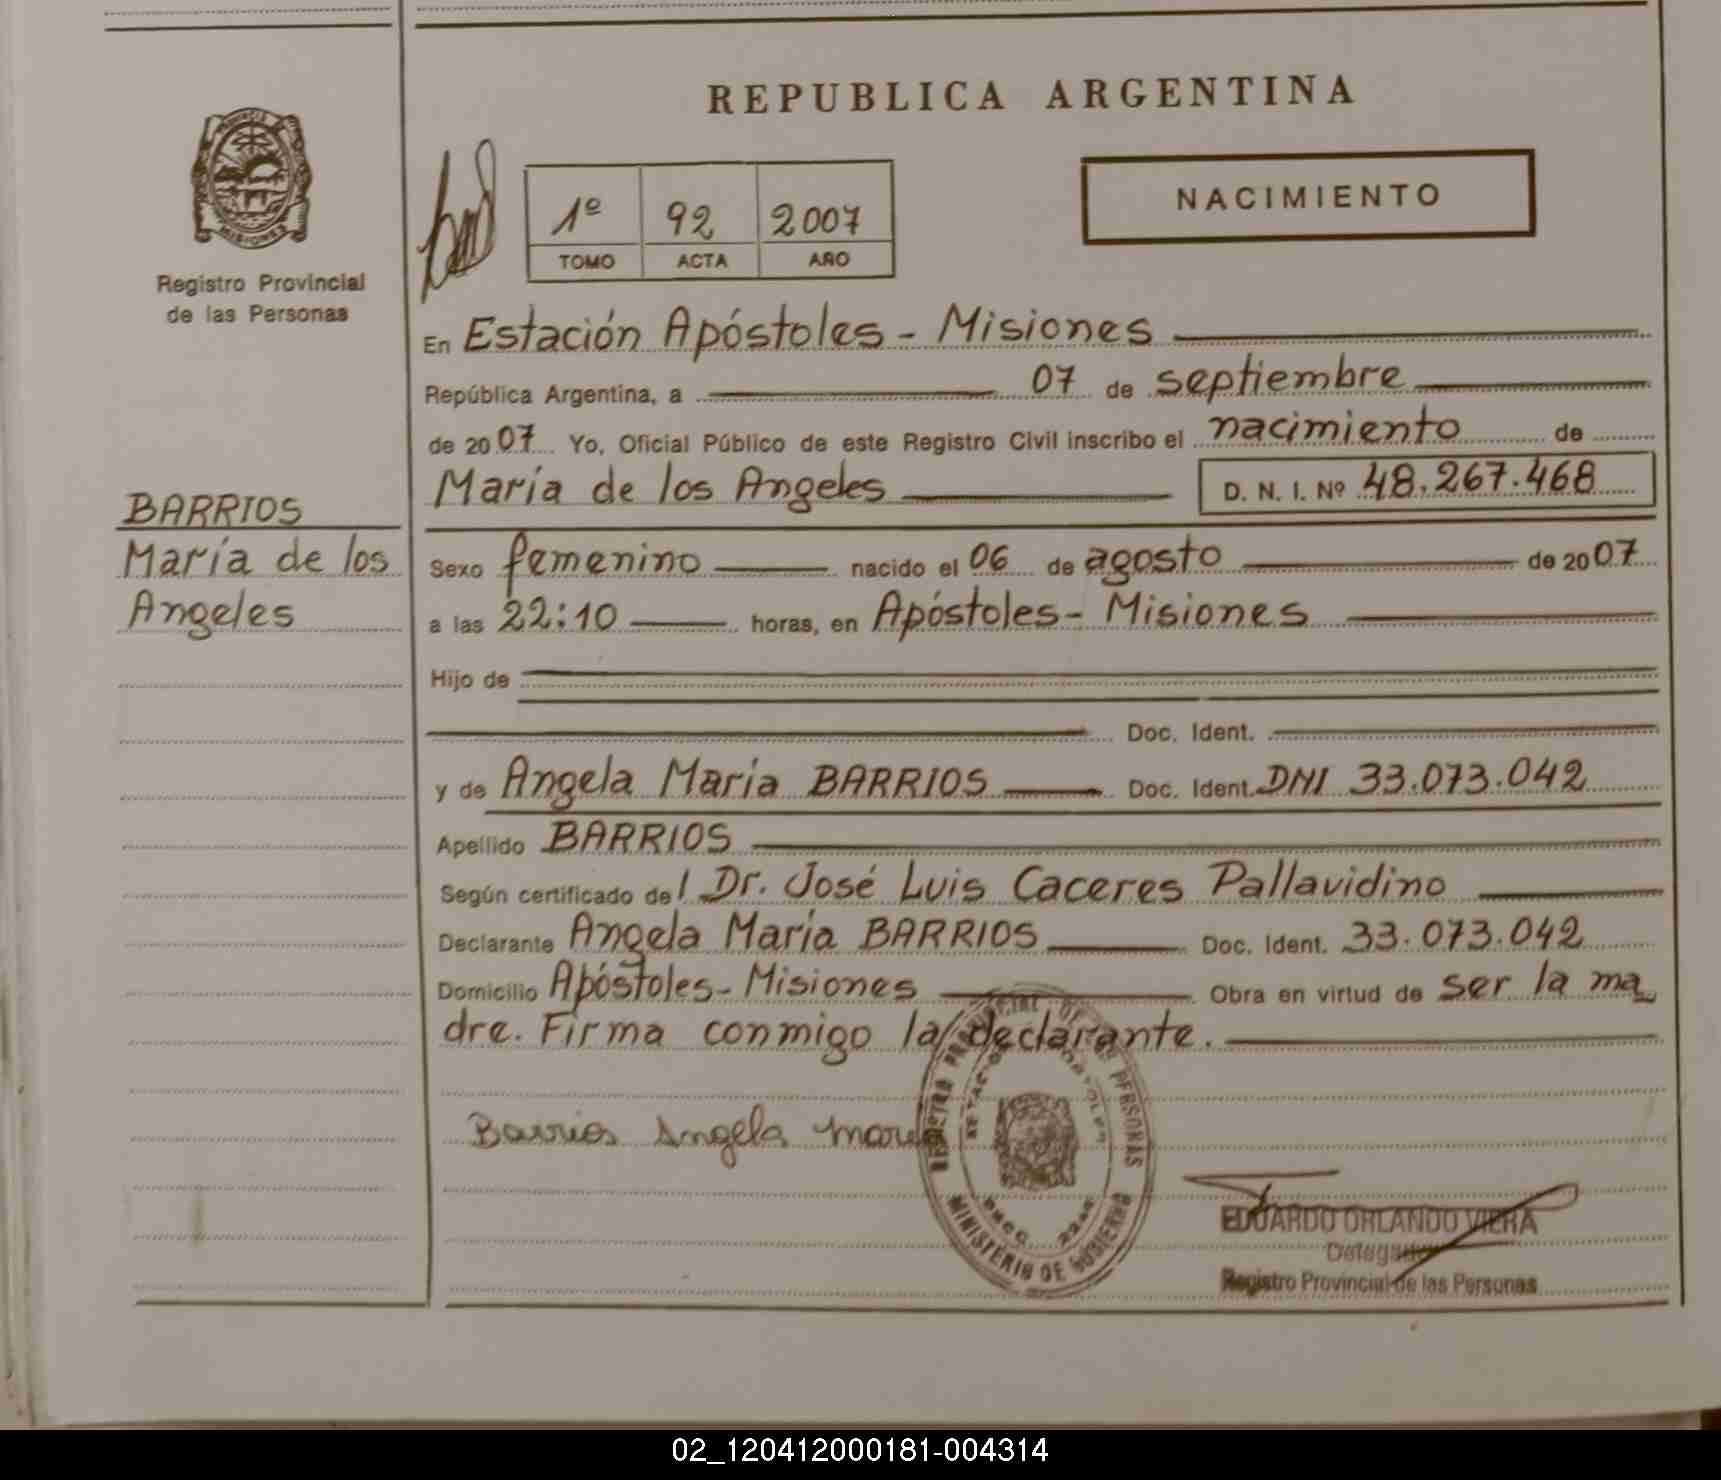 REPUBLICA ARGENTINA
PROVINCIA
MISIONES
Registro Provincial
de las Personas
1º 92 2007
TOMO ACTA AÑO
NACIMIENTO
En Estación Apóstoles - Misiones
República Argentina, a 07 de septiembre
de 2007 Yo, Oficial Público de este Registro Civil inscribo el nacimiento de
María de los Angeles D. N. I. Nº 48.267.468
BARRIOS
María de los
Angeles
Sexo femenino nacido el 06 de agosto de 2007
a las 22:10 horas, en Apóstoles - Misiones
Hijo de
Doc. Ident.
y de Angela María BARRIOS Doc. Ident. DNI 33.073.042
Apellido BARRIOS
Según certificado del Dr. José Luis Caceres Pallavidino
Declarante Angela María BARRIOS Doc. Ident. 33.073.042
Domicilio Apóstoles - Misiones Obra en virtud de ser la ma
dre. Firma conmigo la declarante.
Barrios Angela Maria
REGISTRO PROVINCIAL DE LAS PERSONAS
MINISTERIO DE GOBIERNO
EDUARDO ORLANDO VIERA
Delegado
Registro Provincial de las Personas
02_120412000181-004314